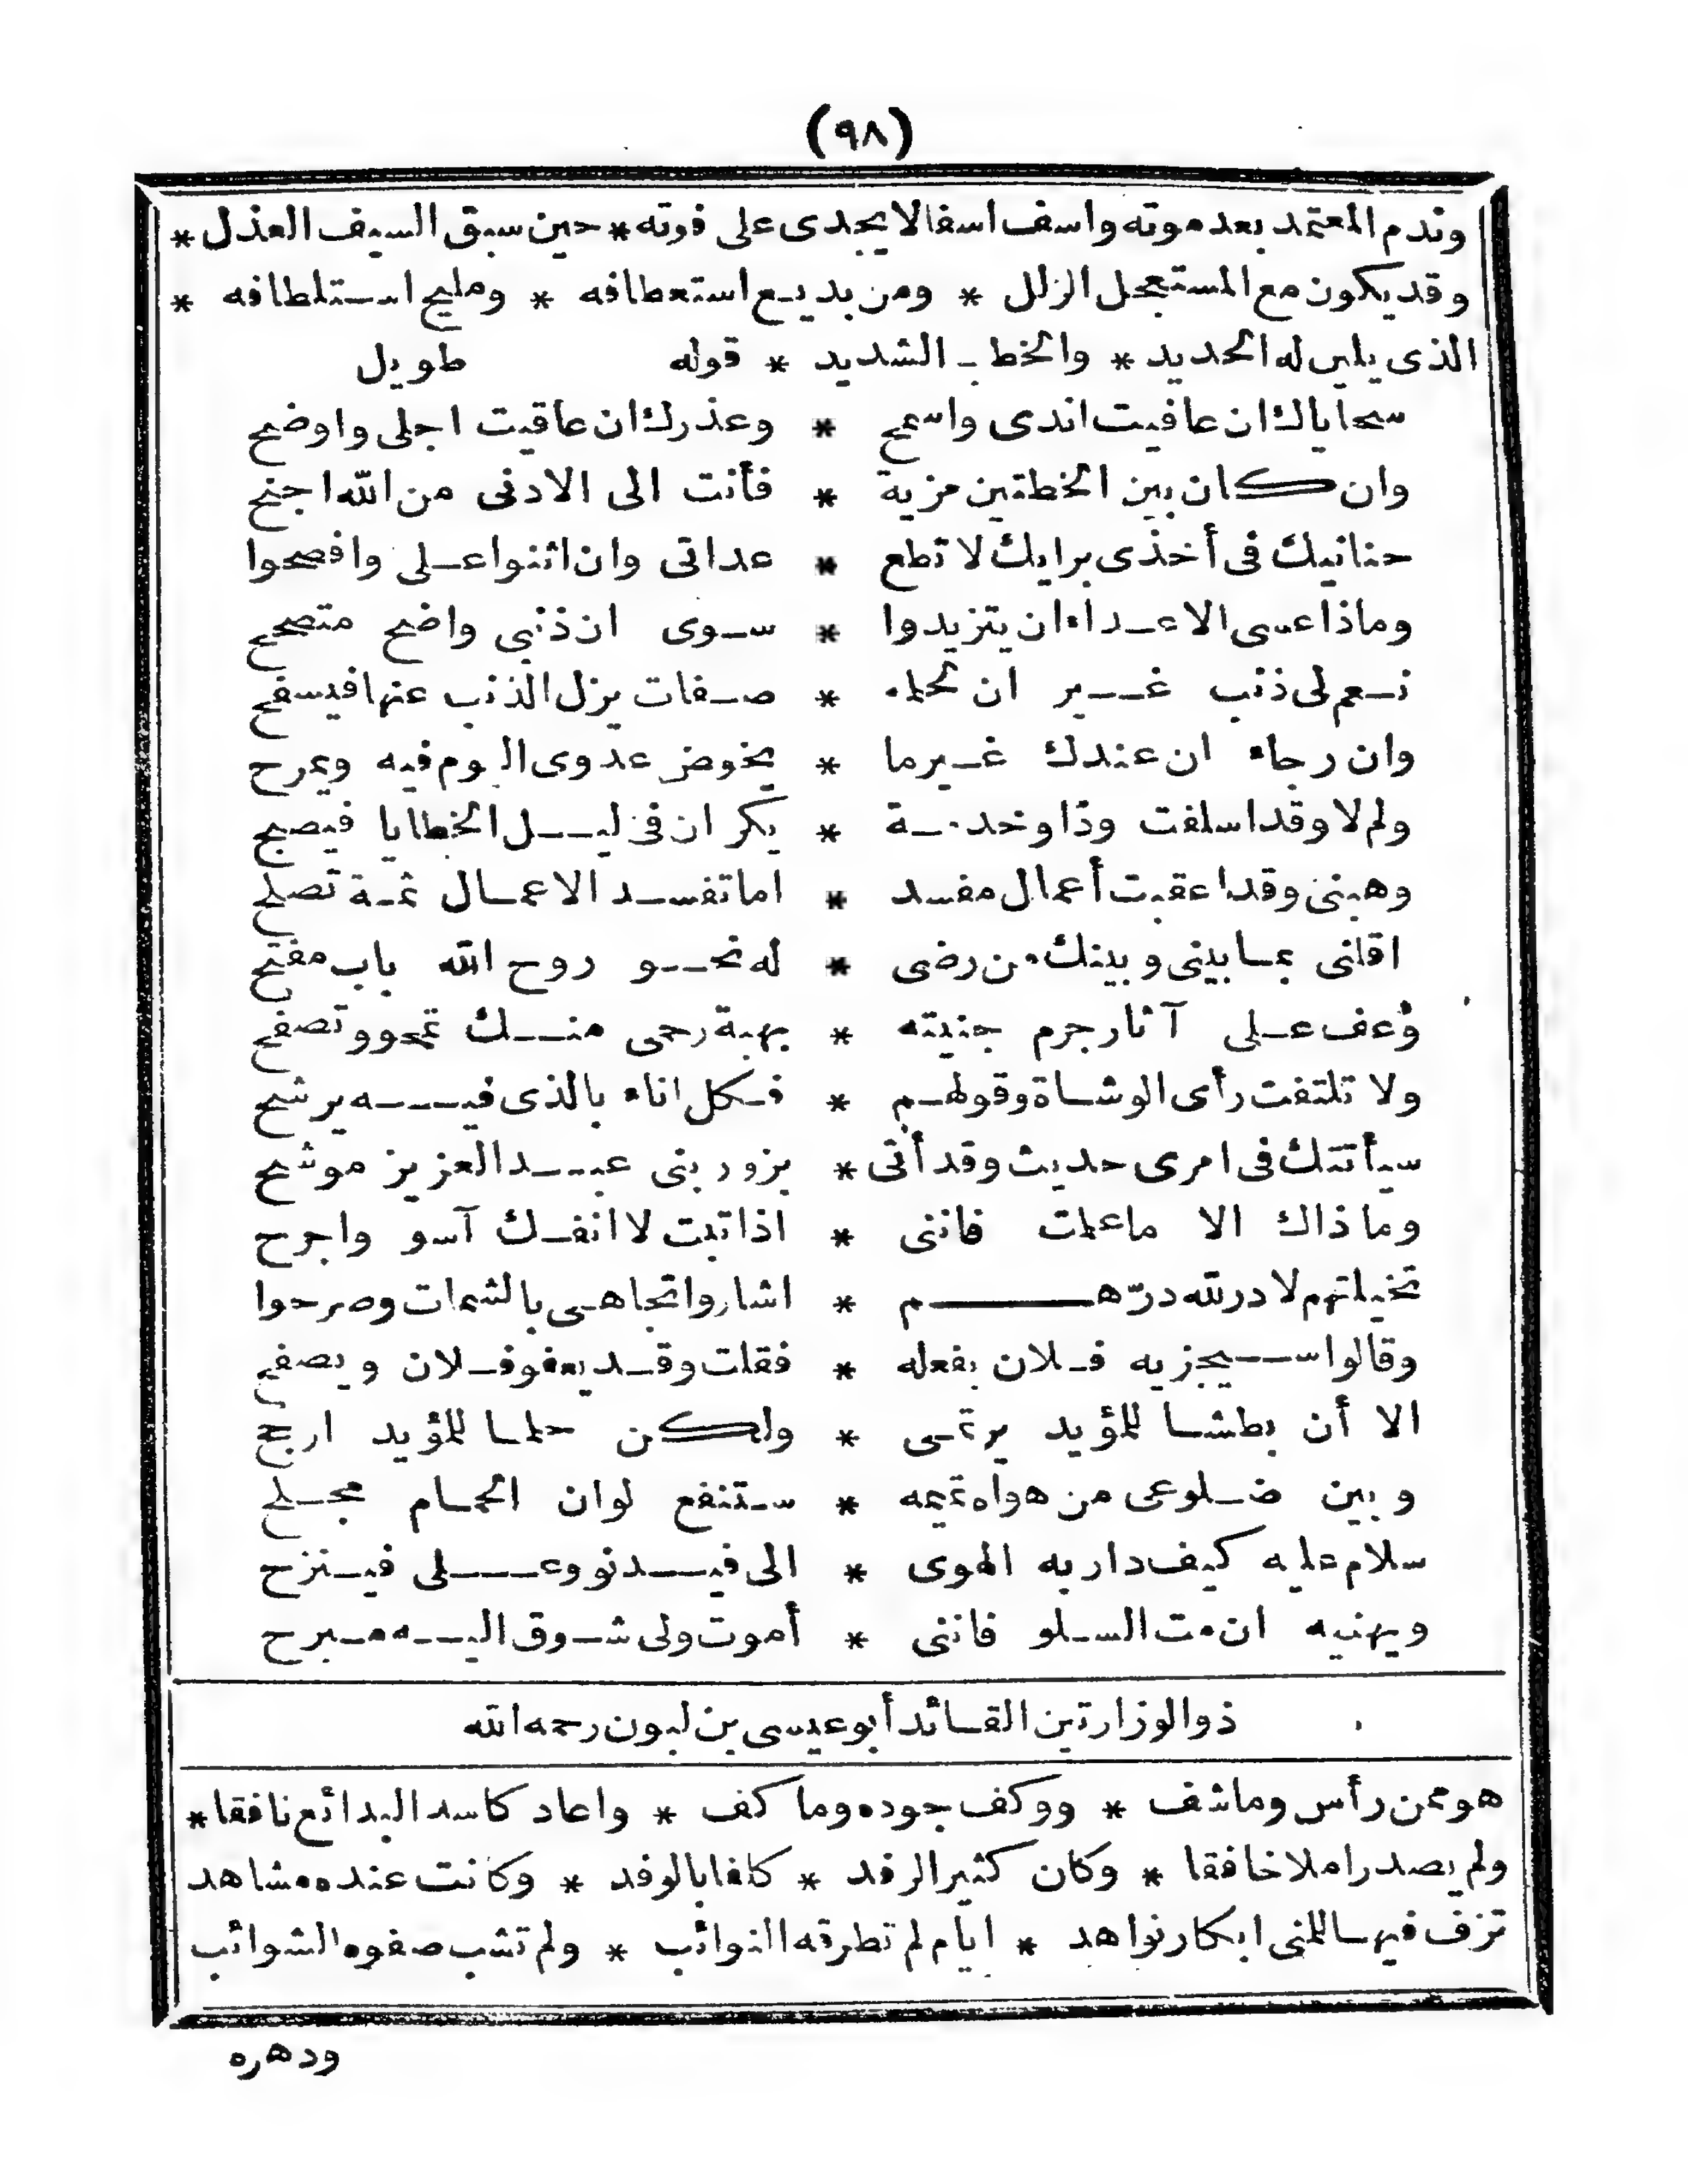 (٩٨)
وندم المعتمد بعد موته واسف اسفا لا يجدى على فوته * حين سبق السيف العذل *
وقد يكون مع المستعجل الزلل * ومن بديع استعطافه * ومليح استلطافه *
الذى يلين له الحديد * والخطب الشديد * قوله طويل
سجاياك ان عافيت اندى واسمح * وعذرك ان عاقبت اجلى واوضح
وان كان بين الخطتين مزية * فأنت الى الادنى من الله اجنح
حنانيك فى أخذى برايك لا تطع * عداتى وان اثنوا على وافصحوا
وماذا عسى الاعداء ان يتزيدوا * سوى ان ذنبى واضح متصحح
نعم لى ذنب غير ان لحلمه * صفات يزل الذنب عنها فيسفح
وان رجاء ان عندك غير ما * يخوض عدوى اليوم فيه ويمرح
ولم لا وقد اسلفت ودّا وخدمة * يكر ان فى ليل الخطايا فيصبح
وهبنى وقد اعقبت أعمال مفسد * اما تفسد الاعمال ثمة تصلح
اقلنى بما بينى وبينك من رضى * له نحو روح الله باب مفتح
وعف على آثار جرم جنيته * بهبة رحمى منك تمحو وتصفح
ولا تلتفت رأى الوشاة وقولهم * فكل اناء بالذى فيه يرشح
سيأتتك فى امرى حديث وقد أتى * بزور بنى عبد العزيز موشح
وما ذاك الا ما علمت فاننى * اذا تبت لا انفك آسو واجرح
تخيلتهم لا در لله درّهم * اشاروا تجاهى بالشمات وصرحوا
وقالوا سيجزيه فلان بفعله * فقلت وقد يعفو فلان ويصفح
الا أن بطشا للمؤيد يرتمى * ولكن حلما للمؤيد ارجح
وبين ضلوعى من هواه تميمه * ستنفع لو ان الحمام مجلح
سلام عليه كيف دار به الهوى * الى فيدنو وعلى فينزح
ويهنيه ان مت السلو فاننى * أموت ولى شوق اليه مبرح
ذو الوزارتين القائد أبو عيسى بن لبون رحمه الله
هو ممن رأس وماشف * ووكف جوده وما كف * واعاد كاسد البدائع نافقا *
ولم يصدر املا خافقا * وكان كثير الرفد * كلفا بالوفد * وكانت عنده مشاهد
تزف فيها للمنى ابكار نواهد * ايام لم تطرقه النوائب * ولم تشب صفوه الشوائب
ودهره